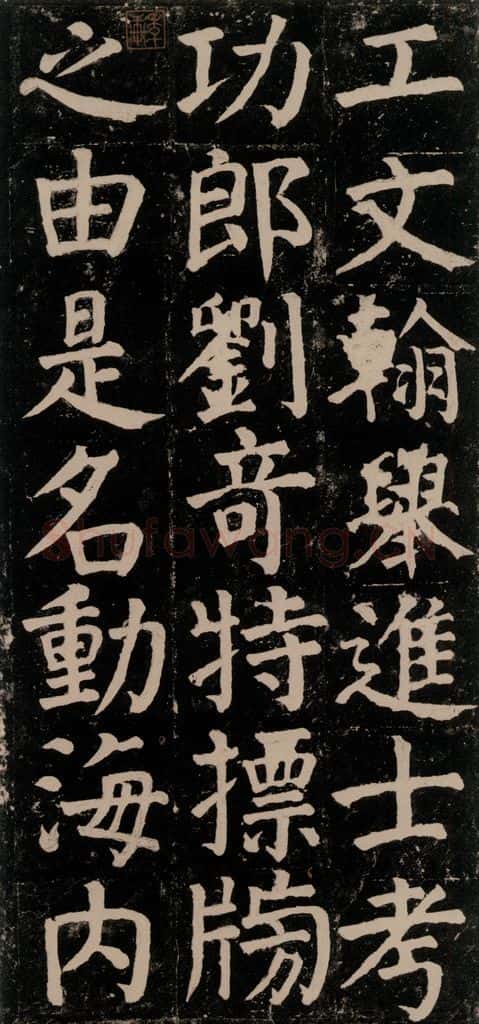 工文翰舉進士考
功郎劉竒特摽牓
之由是名動海内
Shufawang.CN